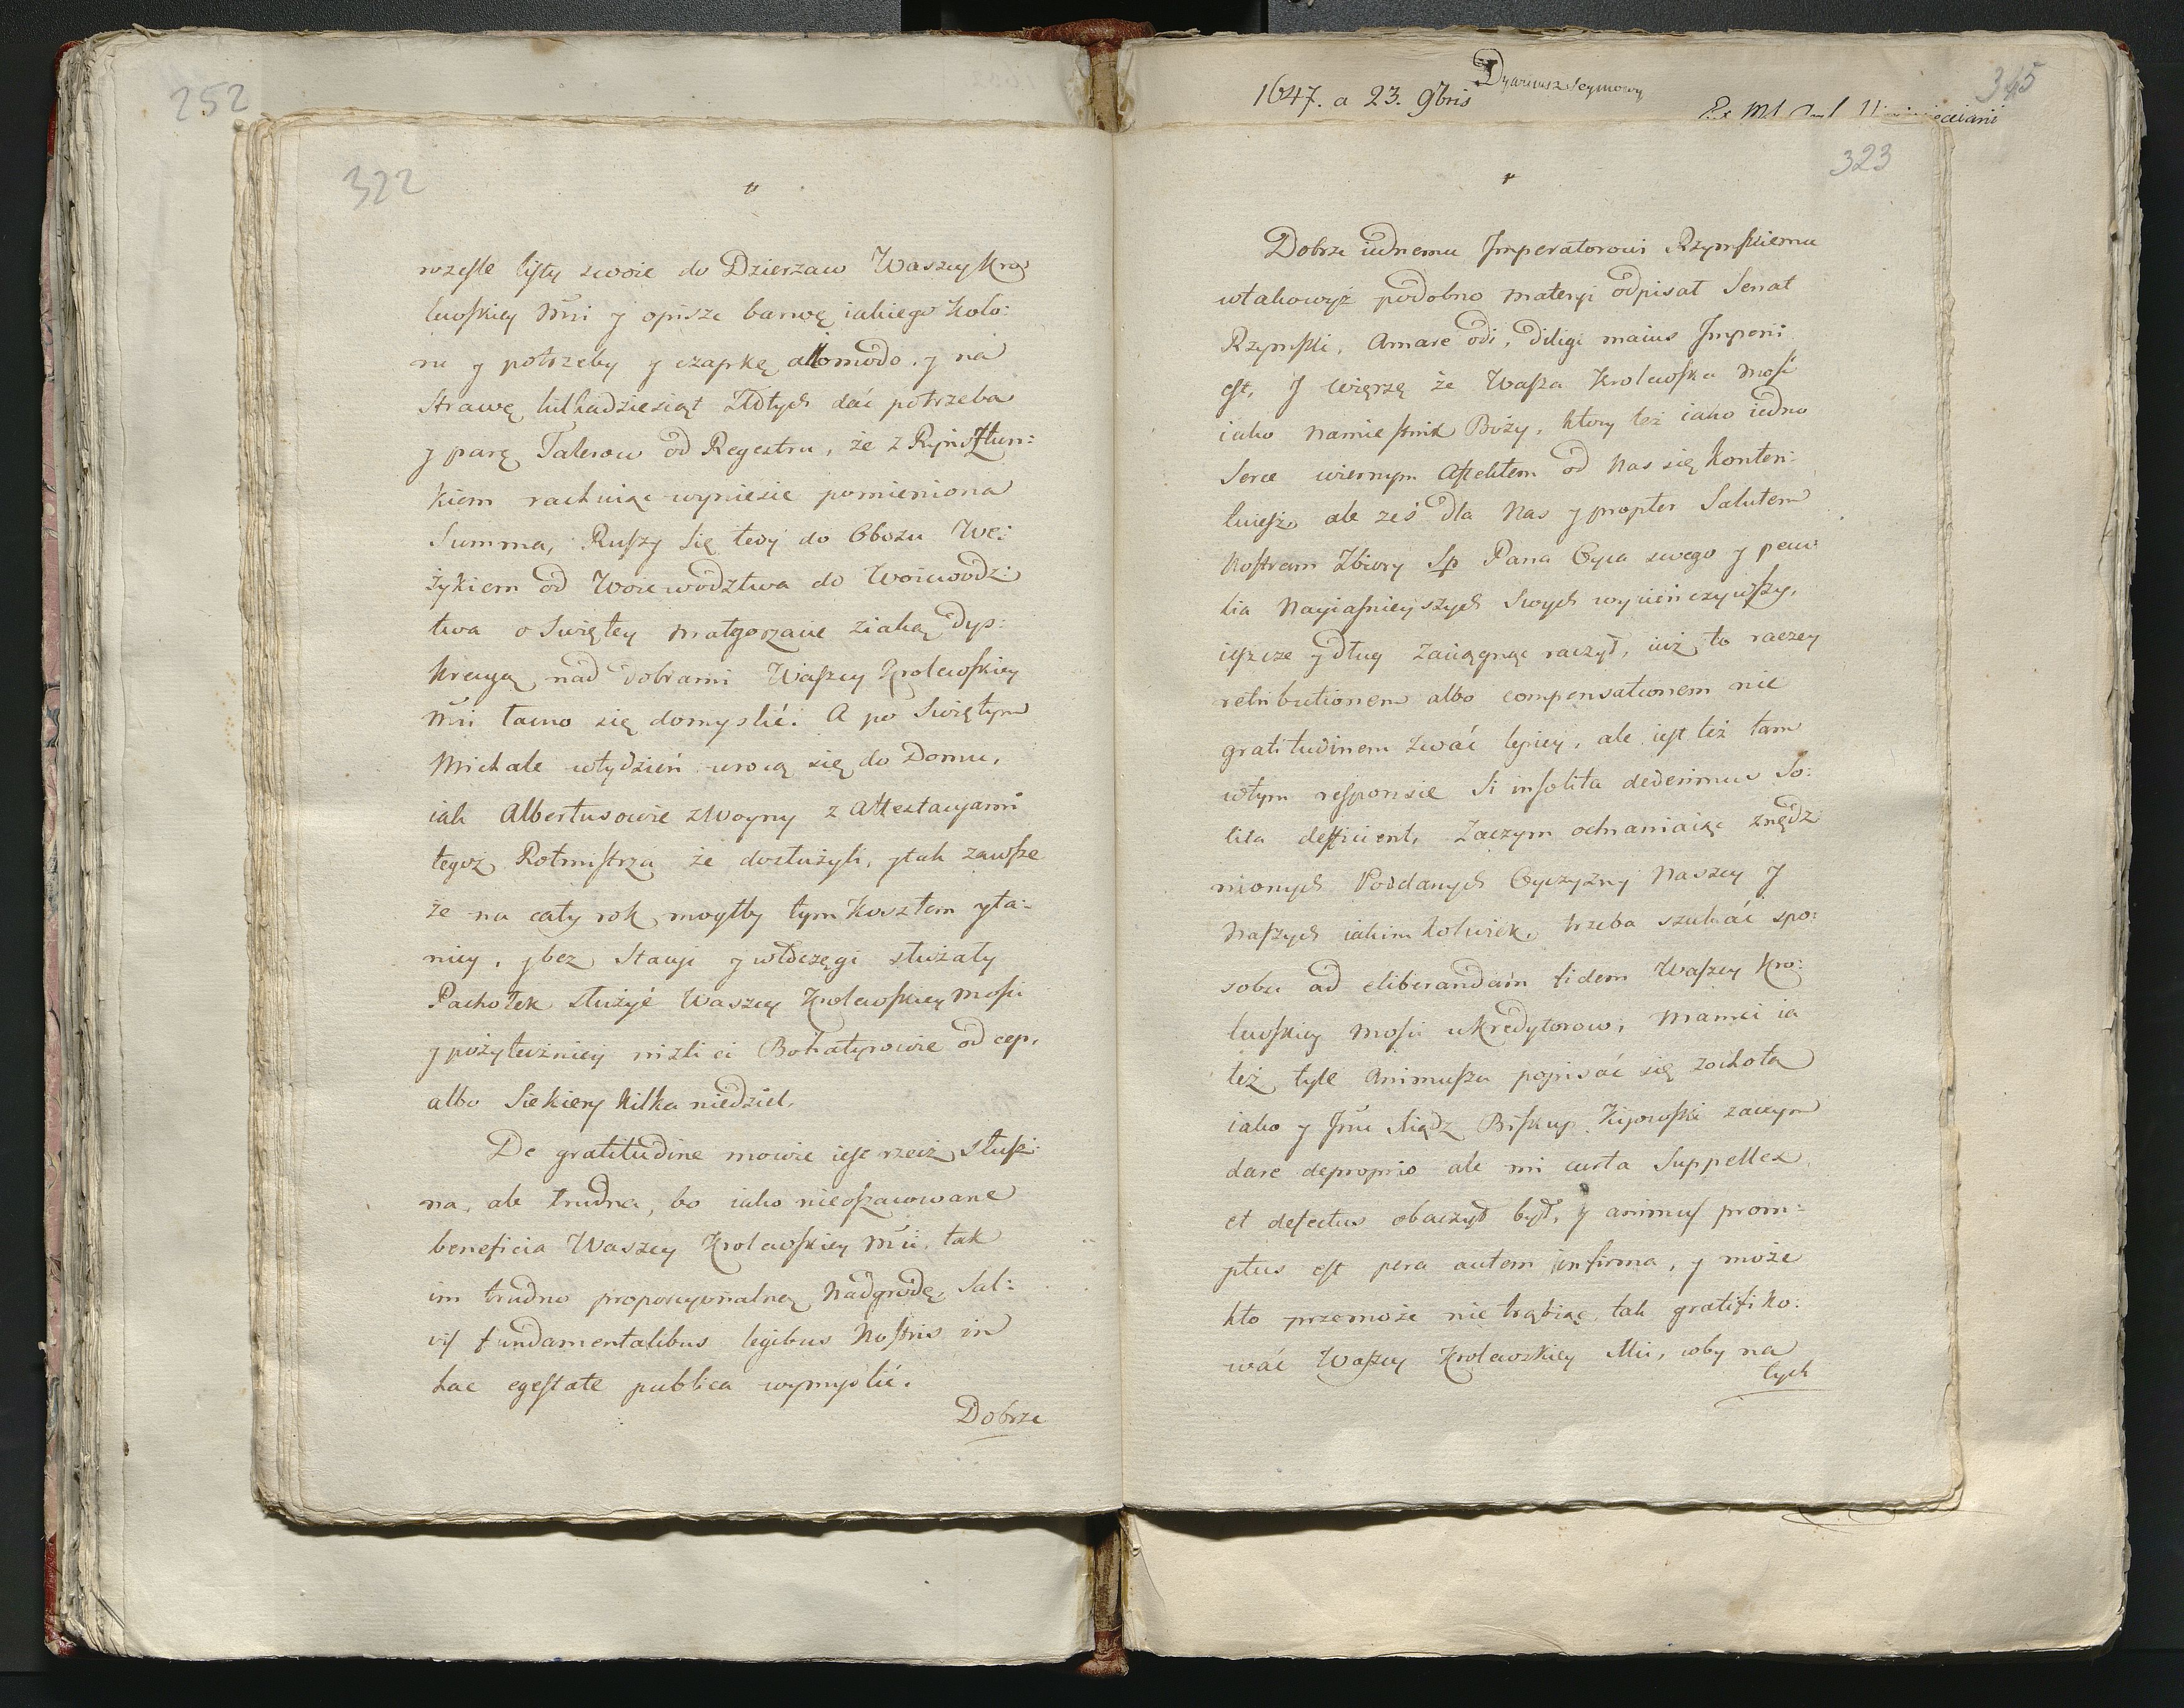 252
322
rozeſle liſty swoie do Dzierzaw Waszey Kro
lewſkiey Mci y opisze barwę iakiego Kolo:
ru y potrzeby y czapkę allomodo. y na
Strawę kilkadziesiąt Złotych dać potrzeba
y parę Talerow od Regestru, że z Rynsztun:
kiem rachuiąc wyniesie pomieniona
Summa, Ruſzy Się tedy do Obozu We:
żykiem od Woiewodztwa do Woiewodz:
twa o Swiętey Małgorzacie ziaką dys:
krecyą nad dobrami Waſzey Krolewſkiey
Mci łacno się domyslić. A po Swiętym
Michale wtydzień wrocą się do Domu,
iak Albertusowie zWoyny z Attestacyami
tegoż Rotmiſtrza że dosłużyli, ytak zawſze
że na cały rok mogłby tym Kosztem yta:
niey, ybez Stacyi y włoczęgi służały
Pachołek służyć Waszey Krolewſkiey Moſci
y pożyteczniey niżli ci Bohatyrowie od cep,
albo Siekiery kilka niedziel.
De gratitudine mowić ieſt rzecz Słuſz:
na, ale trudna, bo iako nieoſzacowane
beneficia Waszey Krolewſkiey Mci, tak
im trudno proporcyonalną Nadgrodę, Sal:
viſ fundamentalibus legibus Noſtris in
hac egeſtate publica wymyslić.
Dobrze
1647. a 23. 9bris
Dyaryusz Seymowy
345
323
Dobrze iednemu Imperatorowi Rzymſkiemu
wtakowyż podobno materyi odpisał Senat
Rzymſki, Amare odi, diligi maius Imperii
eſt, Y wierzę że Waſza Krolewſka Moſć
iako Namieſtnik Boży, ktory też iako iedno
Serce wiernym Affektem od Nas się konten:
tuieſz, ale żeś dla Nas y propter Salutem
Noſtram Zbiory Sp Pana Oyca swego y pecu:
lia Nayiaſnieyszych Swych wycieńczywſzy,
ieſzcze y dług Zaciągnąc raczył, iuż to raczey
retributionem albo compensationem nie
gratitudinem zwać lepiey, ale ieſt też tam
wtym reſponsie Si inſolita dederimus So:
lita defficient, Zaczym ochraniaiąc znędz:
nionych Poddanych Oyczyzny Naszey Y
Naſzych iakimkolwiek, trzeba szukać spo:
sobu ad eliberandam fidem Waſzey Kro:
lewſkiey Moſci uKredytorow, Mamci ia
też tyle Animuſzu popisać się zochotą
iako y Jmc Xiądz Biſkup Kijowſki zaczym
dare deproprio ale mi curta Suppellex
et defectus obaczył był, y animuſ prom:
ptus eſt pera autem infirma, y może
kto przemoże nie trąbiąc, tak gratifiko:
wać Waſzey Krolewskiey Mci, coby na
tych